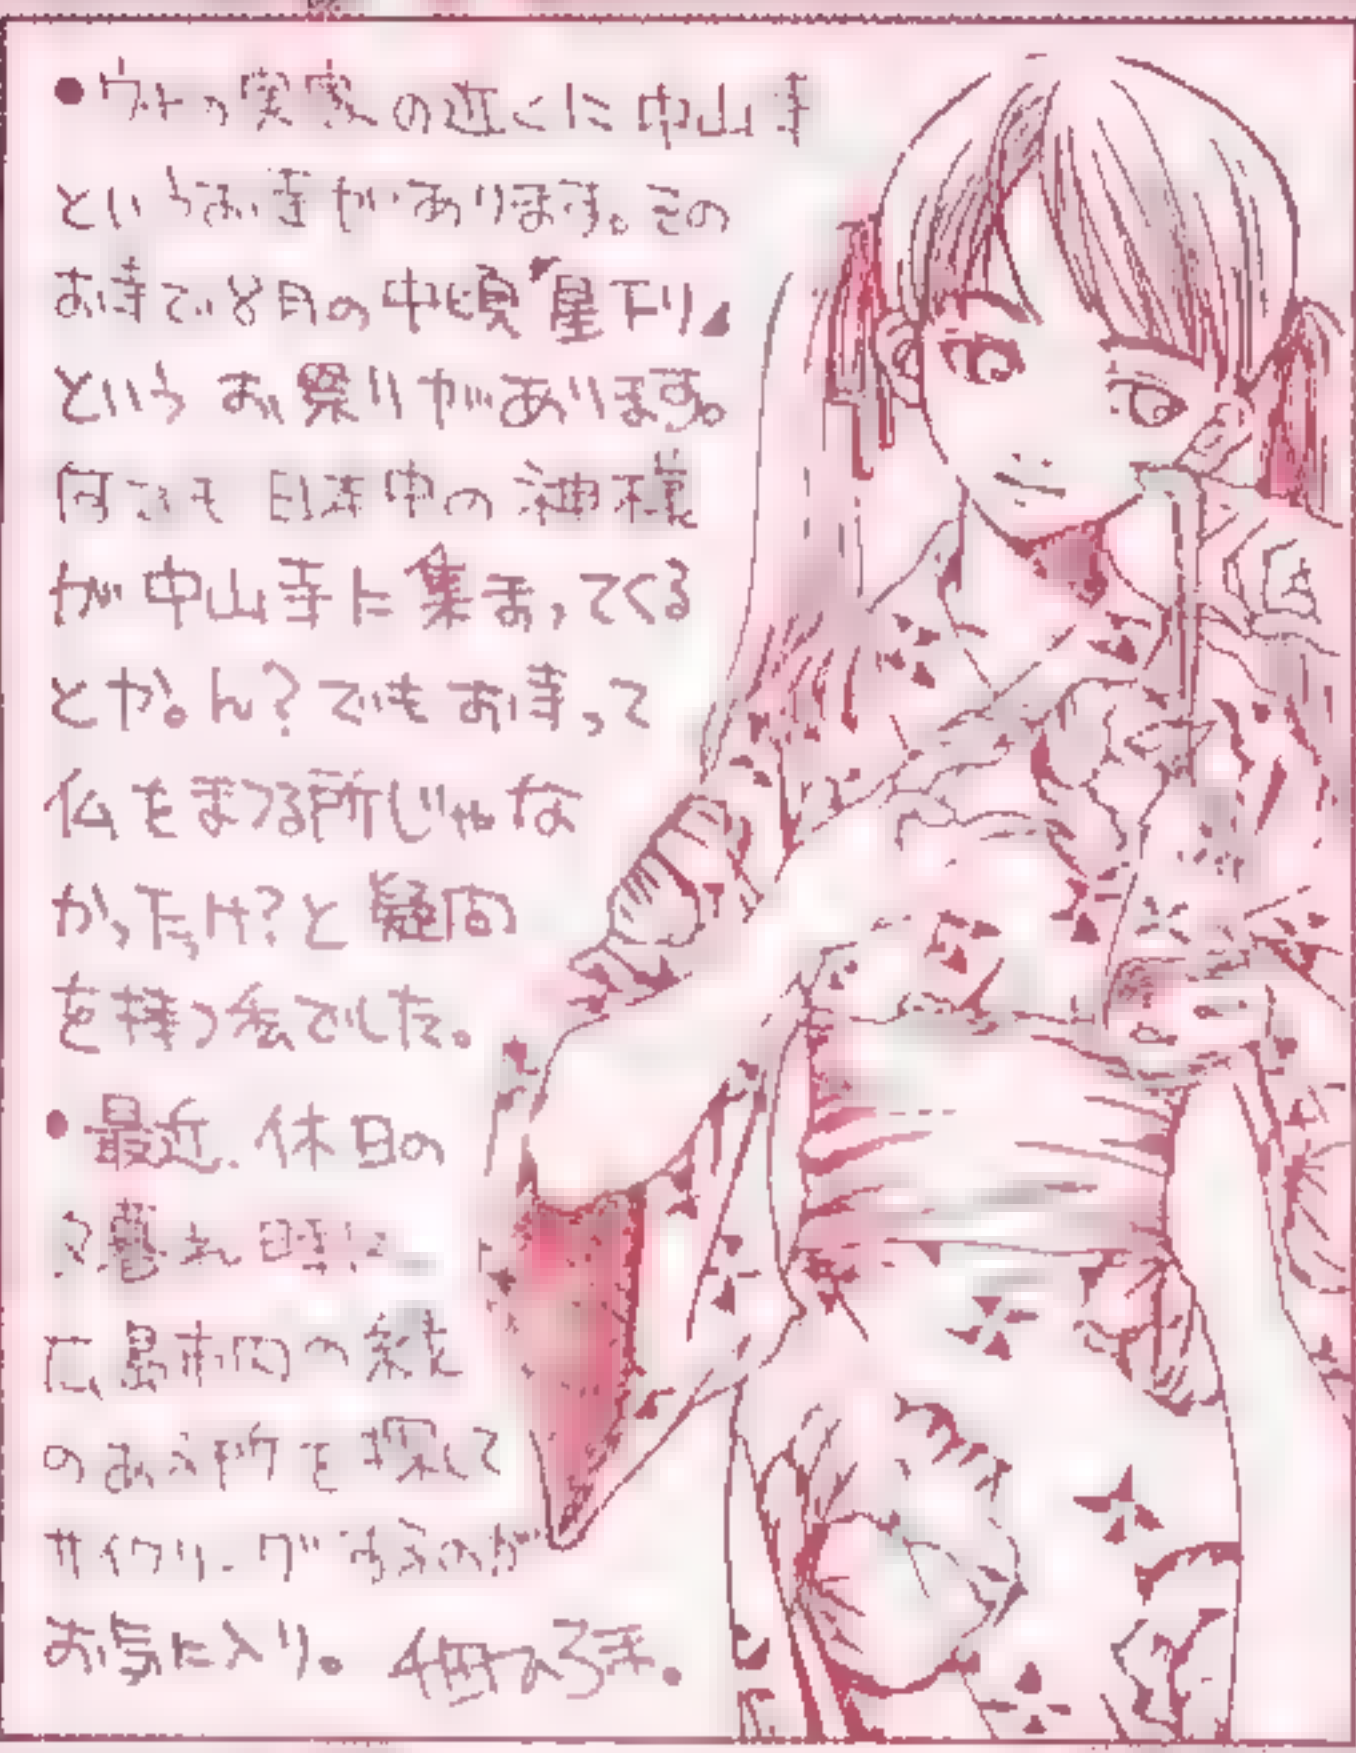 ●ウチの実家の近くに中山寺
というお寺があります。その
お寺で8月の中頃“星下り„
というお祭りがあります。
何でも日本中の神様
が中山寺に集まってくる
とか。ん？でもお寺って
仏をまつる所じゃな
かったっけ？と疑問
を持つ私でした。
●最近、休日の
夕暮れ時に
広島市内の緑
のある所を探して
サイクリングするのが
お気に入り。